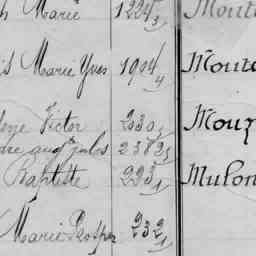 Marie 1224/3 Mout
s Marie Yves 1904/4 Mout
Victor 230/1 Mouz
dre aug^te jules 2382/5
Baptiste 223/1 Mulon
Marie Prosper 232/1